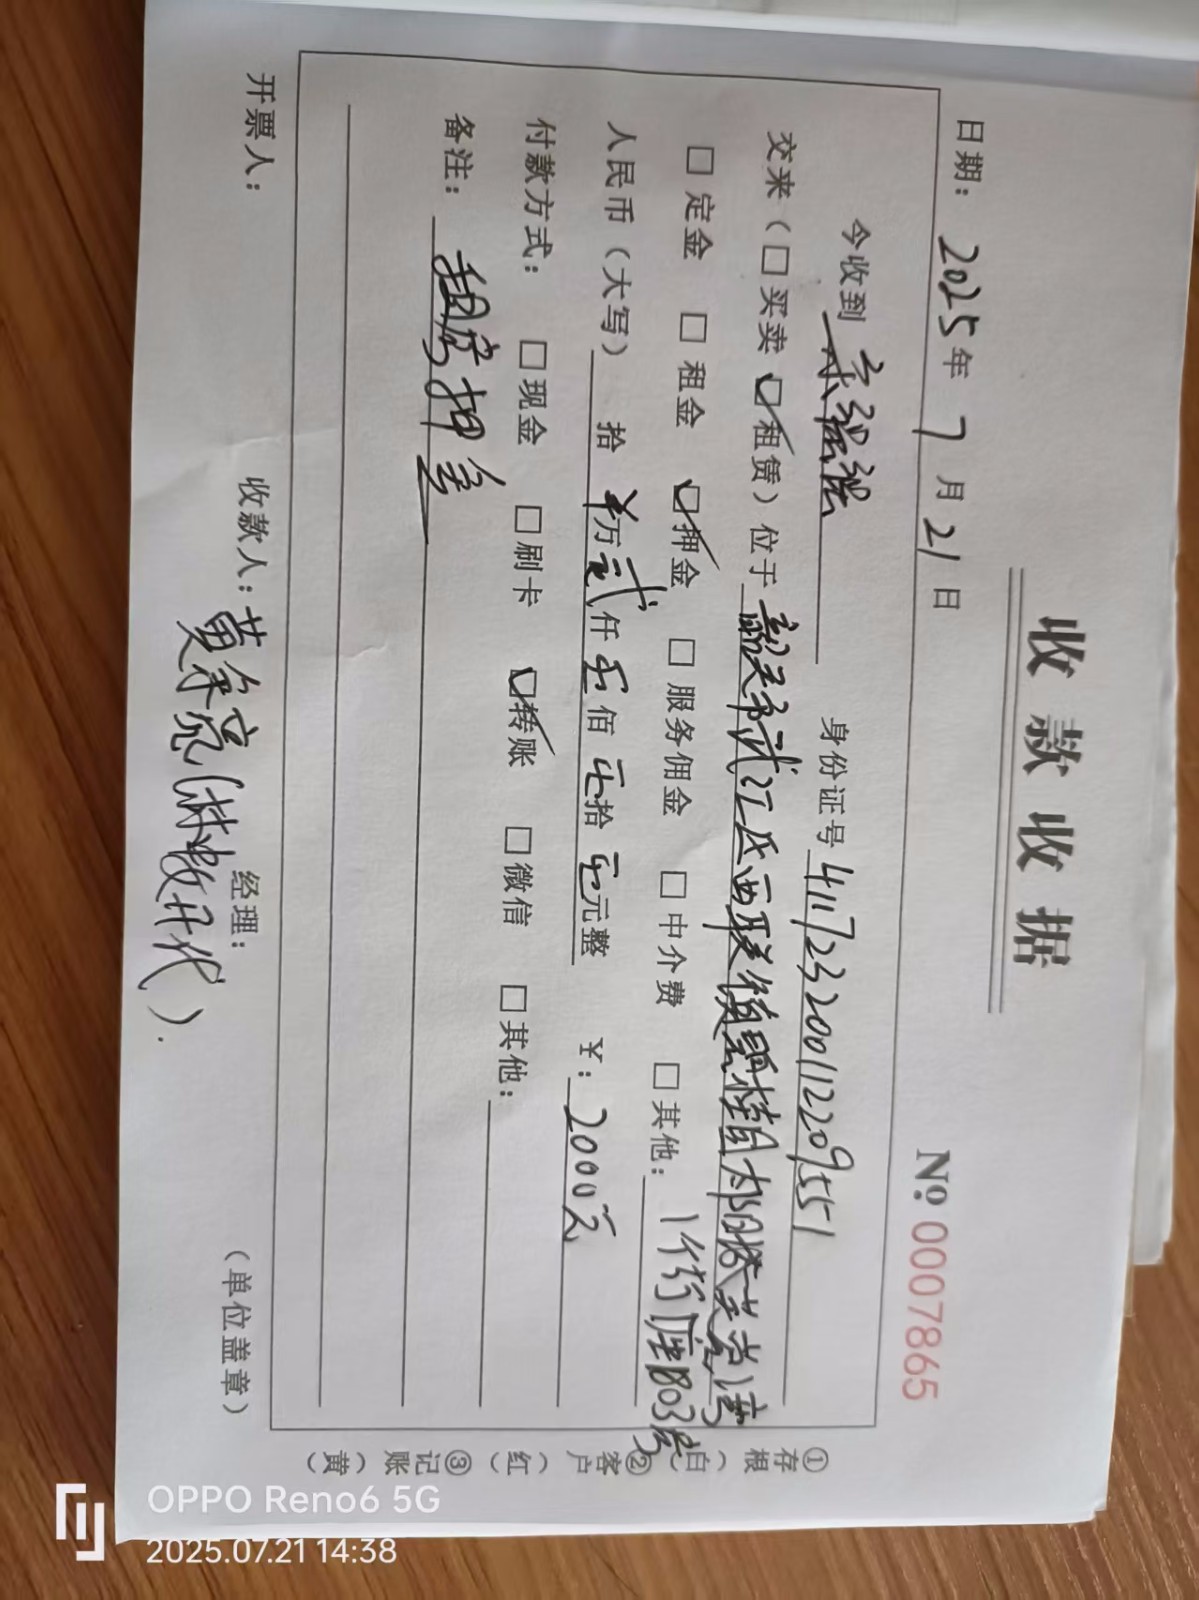 收款收据
№ 0007865
日期：2025年7月21日
今收到 身份证号 411723200112209551
交来（□买卖 ☑租赁）位于 韶关市武江区西联镇碧桂园
□定金 □租金 ☑押金 □服务佣金 □中介费 □其他： 1街 座 803房
人民币（大写） 拾 ¥万 贰仟 零佰 零拾 零元整 ￥：2000元
付款方式： □现金 □刷卡 ☑转账 □微信 □其他：
备注： 租房押金
开票人： 收款人： 经理： （单位盖章）
①存根（白）②客户（红）③记账（黄）
OPPO Reno6 5G
2025.07.21 14:38